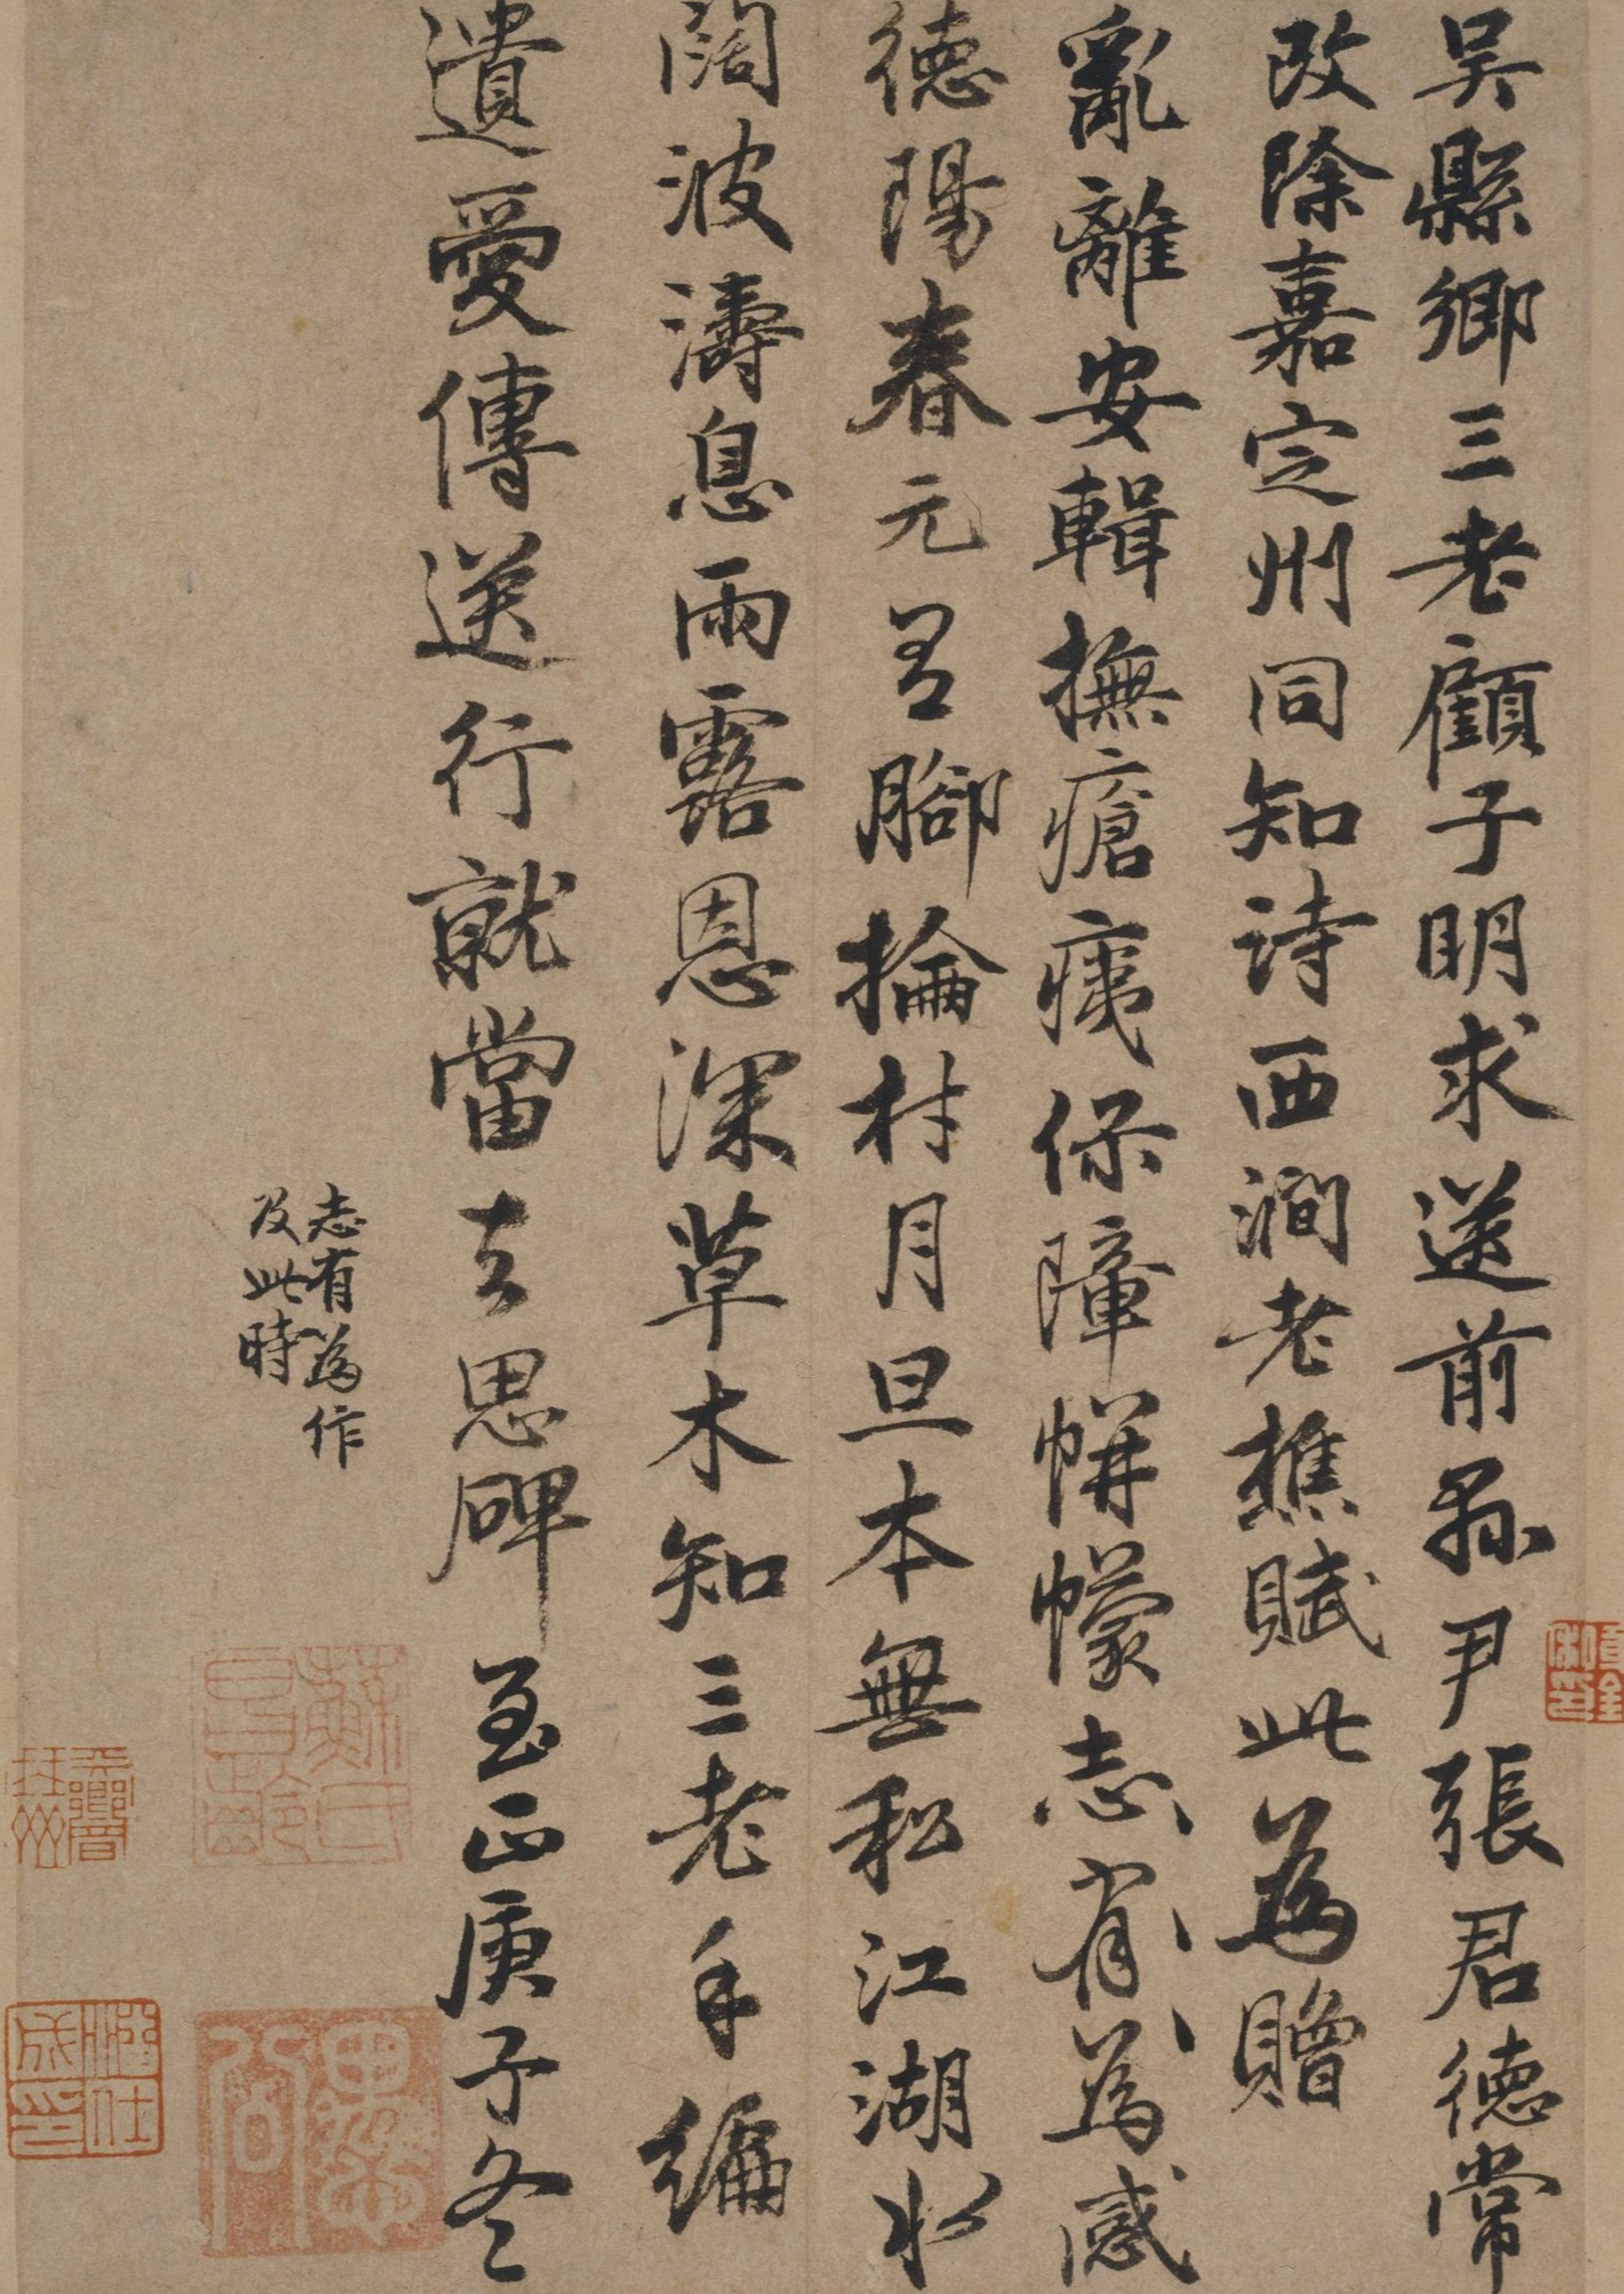 吳縣鄉三老顧子明求送前縣尹張君德常
改除嘉定州同知诗西澗老樵賦此為贈
亂離安輯撫瘡痍保障帡幪志有為感
德陽春元有腳掄材月旦本無私江湖水
闊波濤息雨露恩深草木知三老手編
遺愛傳送行就當去思碑至正庚子冬
志有為作
及此時